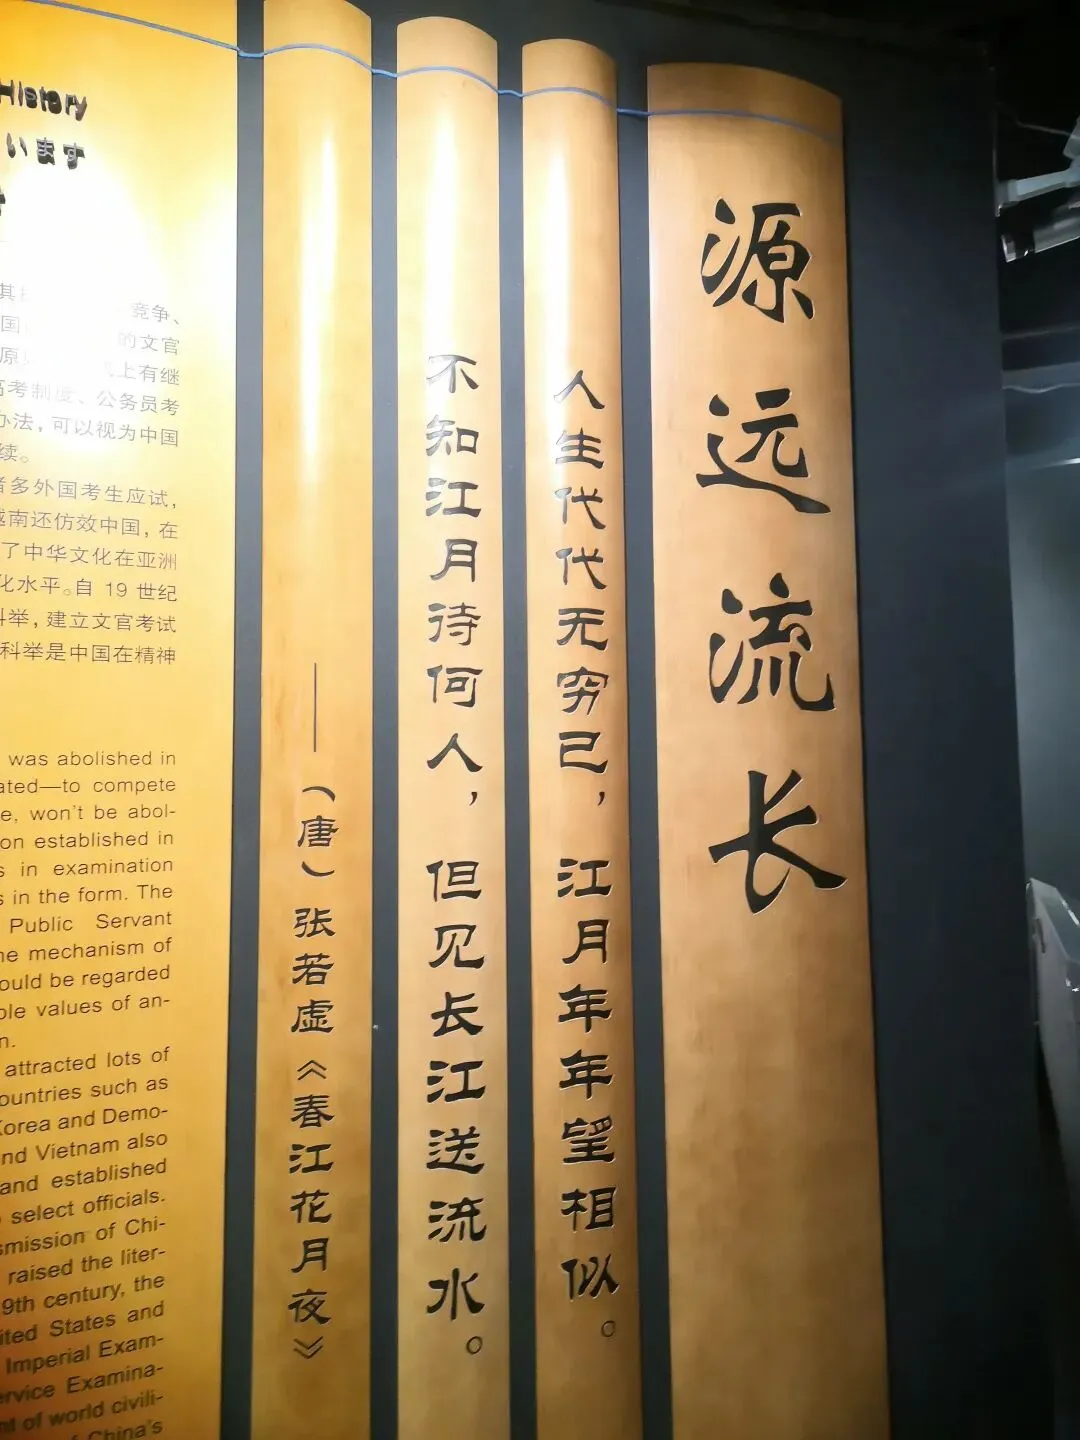 源远流长
人生代代无穷已，江月年年望相似。
不知江月待何人，但见长江送流水。
——（唐）张若虚《春江花月夜》
History
います
其 竞争、
国 的文官
原 上有继
高考制度、公务员考
办法，可以视为中国
续。
诸多外国考生应试，
越南还仿效中国，在
了中华文化在亚洲
化水平。自 19 世纪
科举，建立文官考试
科举是中国在精神
was abolished in
ated—to compete
e, won't be abol-
on established in
s in examination
s in the form. The
Public Servant
he mechanism of
ould be regarded
ble values of an-
n.
attracted lots of
ountries such as
Korea and Demo-
nd Vietnam also
and established
select officials.
smission of Chi-
raised the liter-
9th century, the
ited States and
Imperial Exam-
ervice Examina-
nt of world civili-
of China's